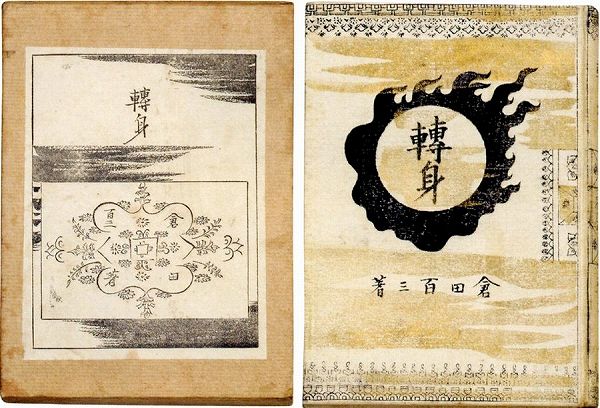 轉身
倉田
百三著
轉身
倉田百三著